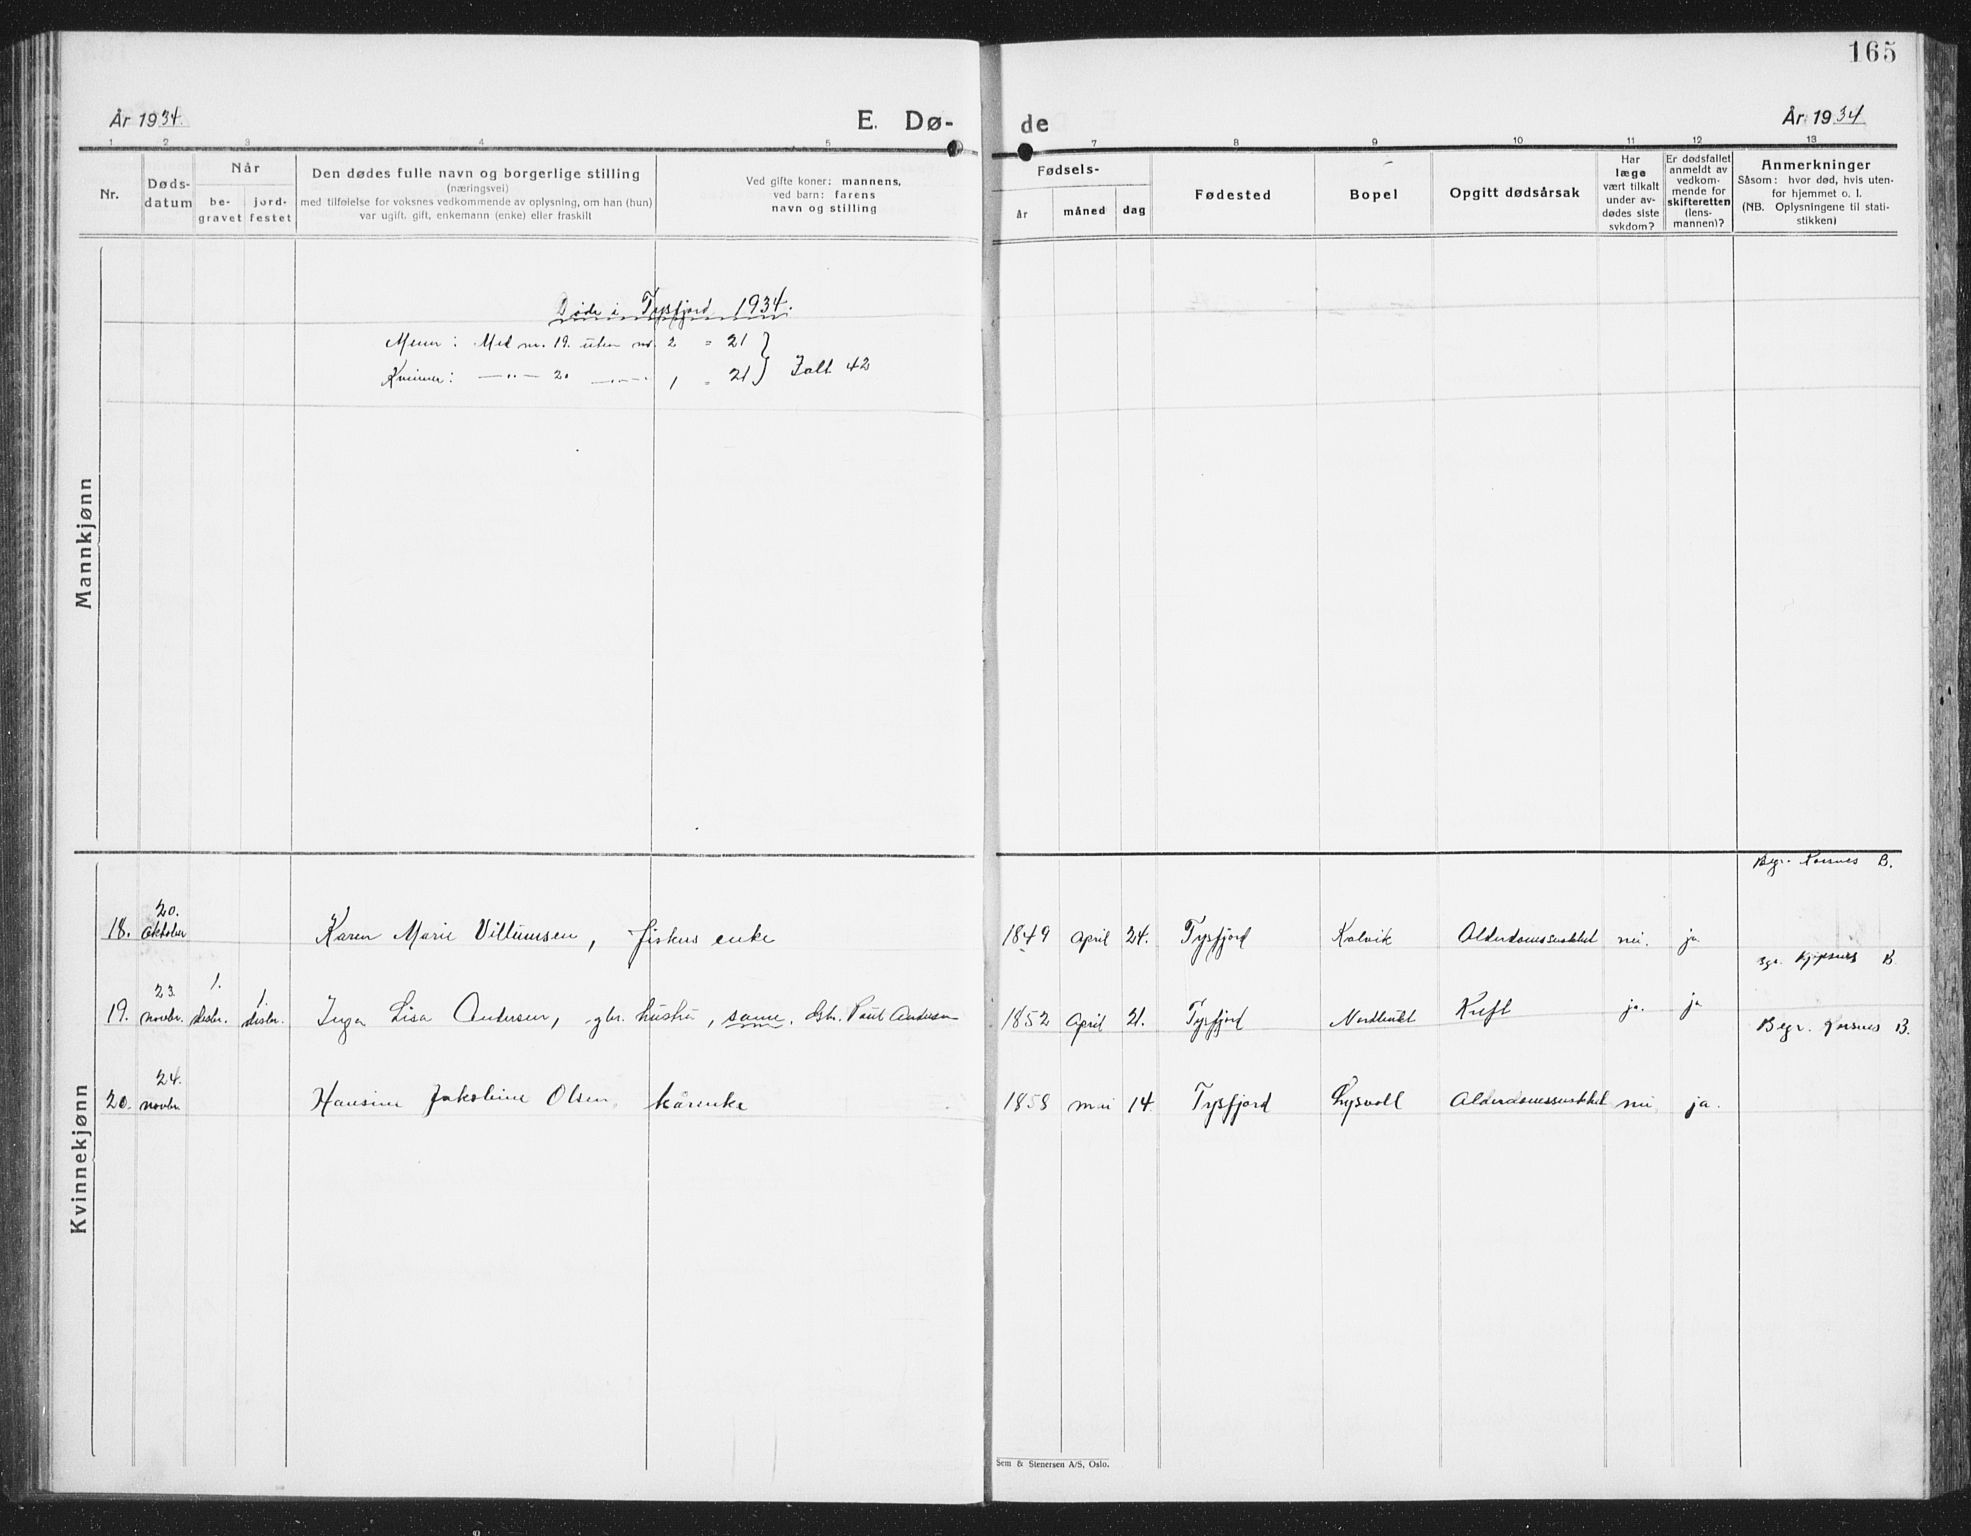 165
År 1934. E. Dø- de År 1934
1 2 3 4 5 7 8 9 10 11 12 13
Nr.
Døds-
datum
Når
be-
gravet
jord-
festet
Den dødes fulle navn og borgerlige stilling
(næringsvei)
med tilføielse for voksnes vedkommende av oplysning, om han (hun)
var ugift, gift, enkemann (enke) eller fraskilt
Ved gifte koner: mannens,
ved barn: farens
navn og stilling
Fødsels-
år måned dag
Fødested
Bopel
Opgitt dødsårsak
Har
læge
vært tilkalt
under av-
dødes siste
sykdom?
Er dødsfallet
anmeldt av
vedkom-
mende for
skifteretten
(lens-
mannen)?
Anmerkninger
Såsom: hvor død, hvis uten-
for hjemmet o. l.
(NB. Oplysningene til stati-
stikken)
Mannkjønn
Døde i Tysfjord 1934.
Menn: Med nr. 19. uten nr. 2 = 21 }
Kvinner: —〃— 20 —〃— 1 = 21 } Ialt 42
Kvinnekjønn
Begr. Korsnes B.
18. 20. oktober Karen Marie Villumsen, fiskers enke 1849 april 24. Tysfjord Kalvik Alderdomssvakhet nei. ja
B.
19. 23. novbr. 1. desbr. 1. desbr. Inga Lisa Andersen, gbr. hustru, same. Gbr. Paul Andersen 1852 april 21. Tysfjord Nordbukt Kreft ja. ja
Begr. Korsnes B.
20. 24. novbr. Hansine Jakobine Olsen, kårenke 1858 mai 14. Tysfjord Lysvoll Alderdomssvakhet nei ja.
Sem & Stenersen A/S, Oslo.